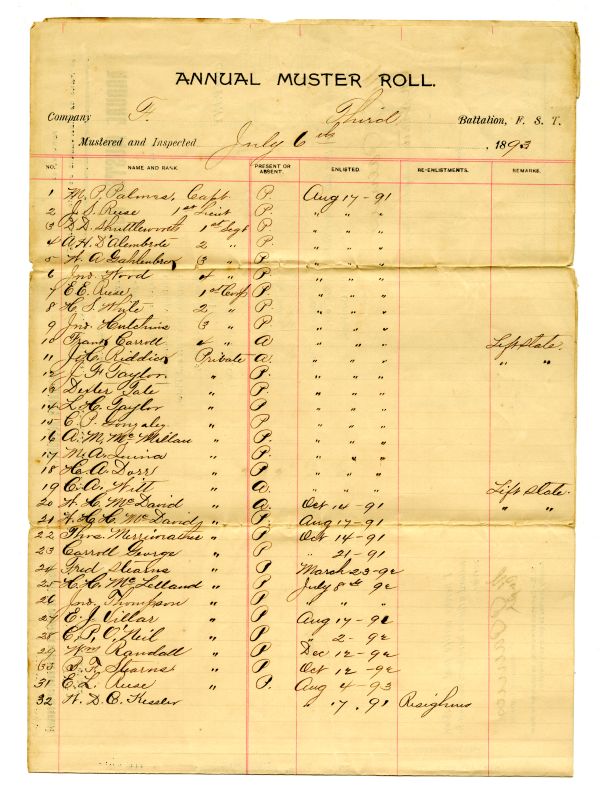 ANNUAL MUSTER ROLL.
Company F. Third Battalion, F. S. T.
Mustered and Inspected July 6th, 1893
NO. NAME AND RANK. PRESENT OR ABSENT. ENLISTED. RE-ENLISTMENTS. REMARKS.
1 M. P. Palmes, Capt P. Aug 17-91
2 J. S. Reese 1st Lieut P. " " "
3 D. D. Shuttleworth 1st Sergt P. " " "
4 A. H. D'Alemberte 2 " P. " " "
5 W. A. Gahlenbeck 3 " P. " " "
6 Jno. Wood 4 " P. " " "
7 E. E. Reese, 1st Corp P. " " "
8 H. S. White 2 " P. " " "
9 Jno. Hutchins 3 " P. " " "
10 Frank Carroll 4 " A " " " Left state
11 J. H. Riddick Private A. " " " " "
12 J. F. Taylor " P. " " "
13 Dexter Tate " P. " " "
14 L. H. Taylor " P. " " "
15 E. P. Gonzalez " P. " " "
16 A. M. McMillan " P. " " "
17 M. A. Quina " P. " " "
18 H. A. Dorr " P. " " "
19 C. A. Witt " A. " " " Left state
20 W. H. McDavid " A. Oct 14-91 " "
21 W. H. H. McDavid " P. Aug 17-91
22 Thos. Merriwether " P. Oct 14-91
23 Carroll George " P " 21-91
24 Fred Stearns " P March 23-92
25 H. H. McLelland " P July 8th 92
26 Jno. Thompson " P " " "
27 E. J. Villar " P Aug 17-92
28 E. P. O'Neil " P " 2-92
29 Wm Randall " P Dec 12-92
30 P. F. Stearns " P Oct 12-92
31 E. L. Reese " P. Aug 4-93
32 W. D. C. Kessler " 17. 91